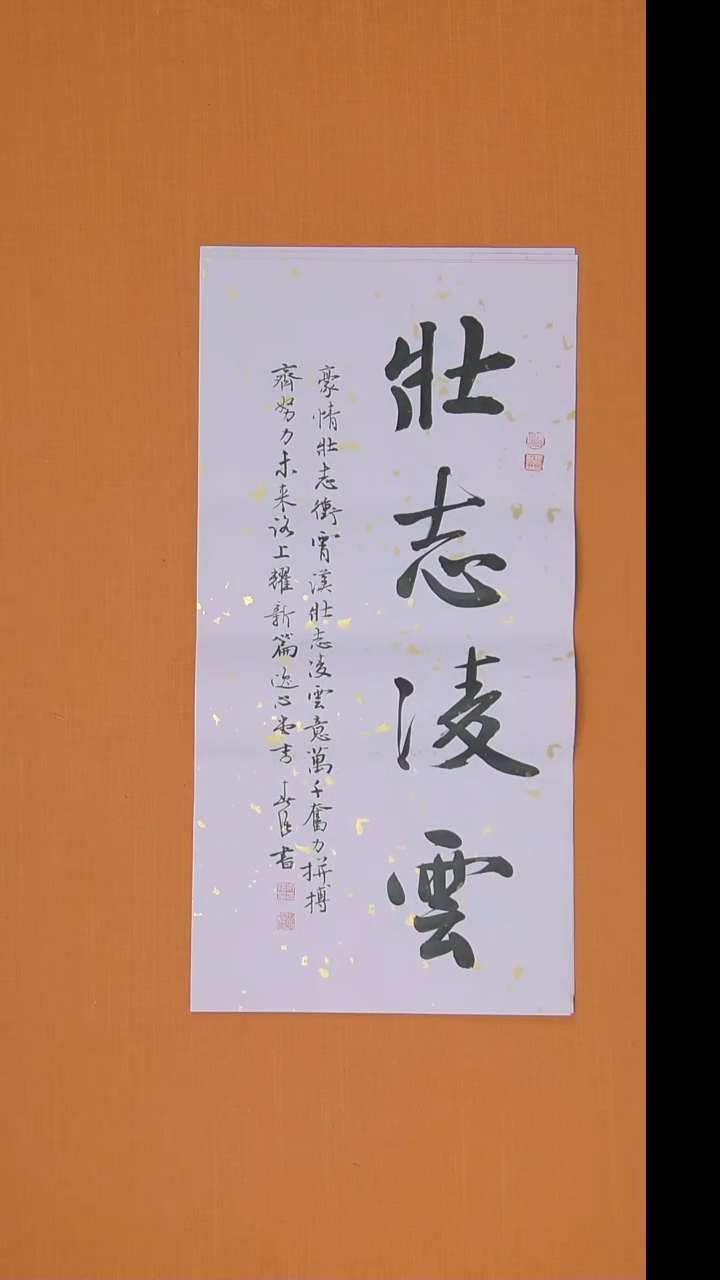 壯志淩雲
豪情壯志衝霄漢壯志淩雲意萬千奮力拼搏
齊努力未来路上耀新篇逸心堂書